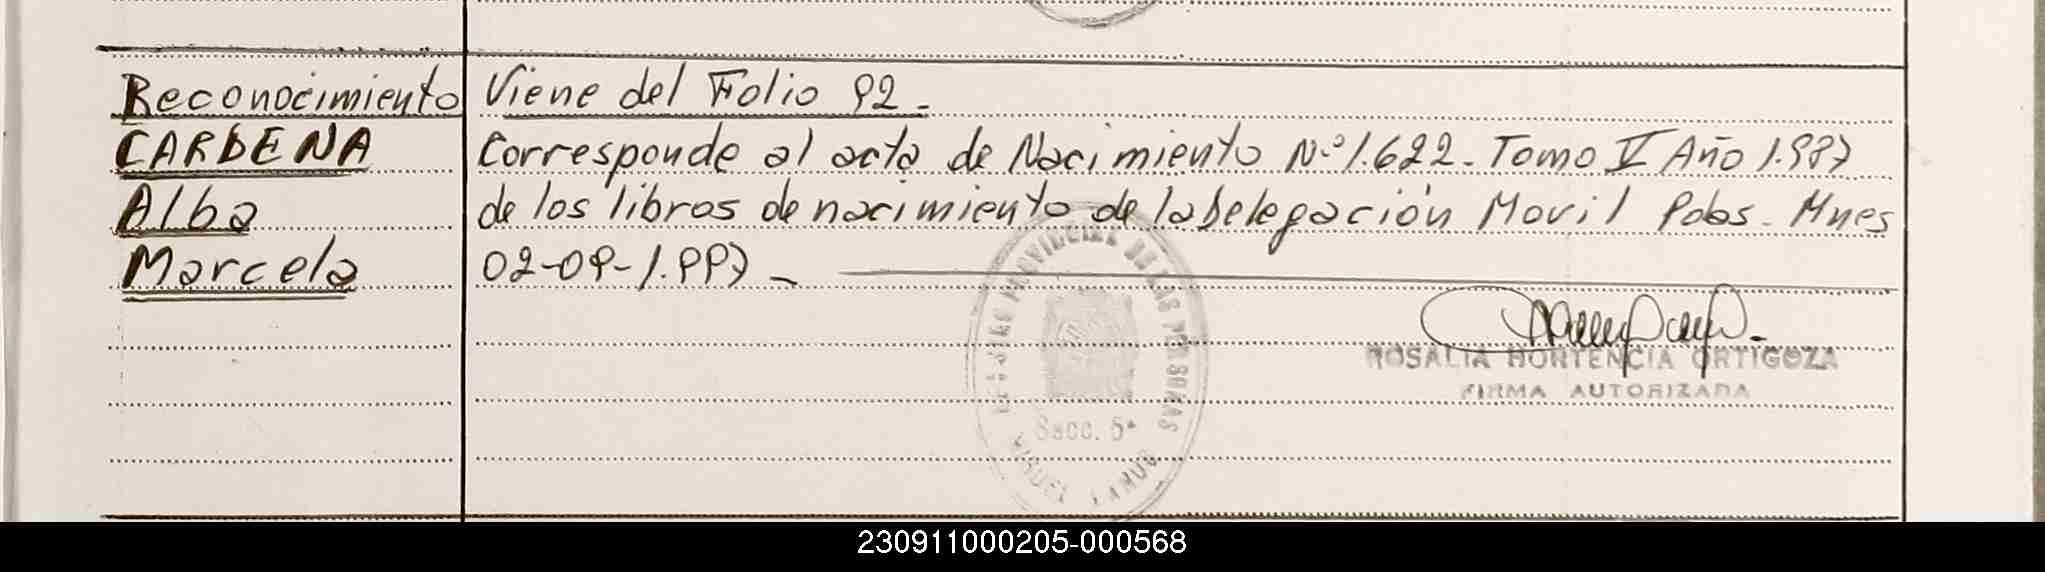 Reconocimiento
CARDENA
Alba
Marcela
Viene del Folio 92.-
Corresponde al acta de Nacimiento N.º 1.622. Tomo V Año 1.987
de los libros de nacimiento de la Delegación Movil Pdas. Mnes
02-09-1.997 -
REGISTRO PROVINCIAL DE LAS PERSONAS
Secc. 5ª
ROSALIA HORTENCIA ORTIGOZA
FIRMA AUTORIZADA
230911000205-000568